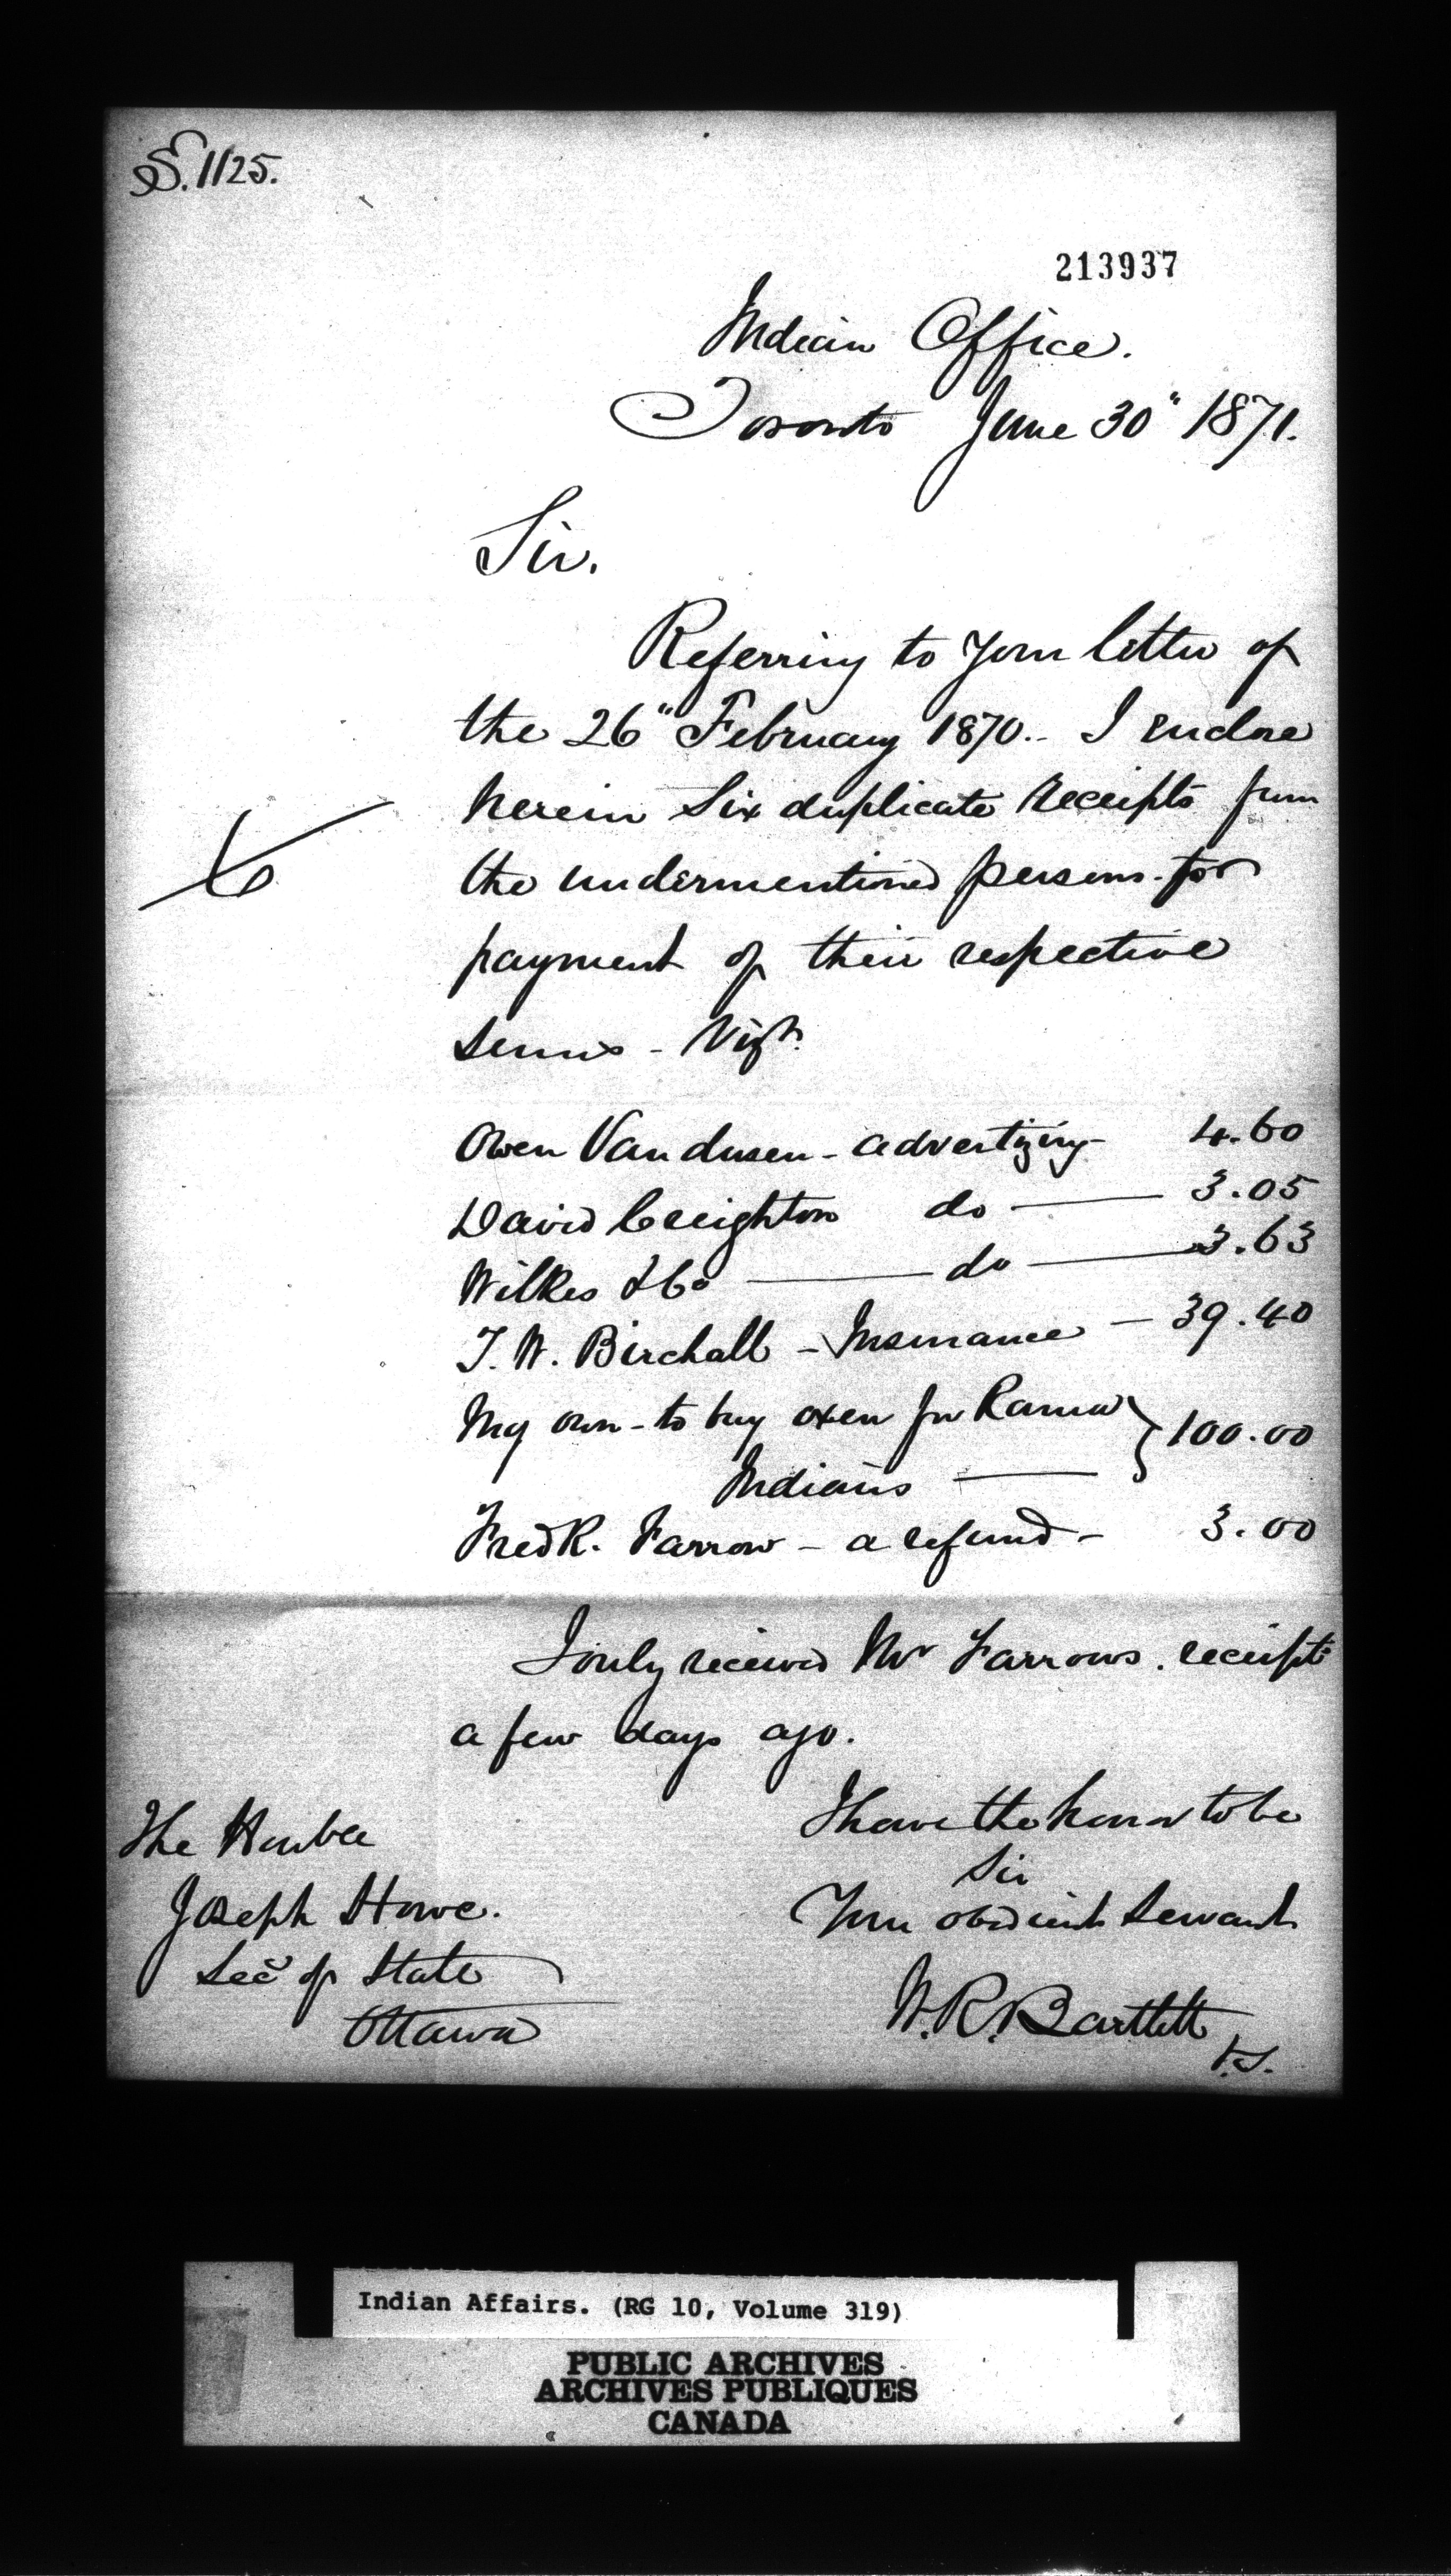 S. 1125.
213937
Indian Office.
Toronto June 30" 1871.
Sir.
Referring to your letter of
the 26" February 1870.. I enclose
herein six duplicate receipts from
6
the undermentioned persons for
payment of their respective
sums - Vizt.
Owen Vandusen - advertizing - 4.60
David Creighton do — 3.05
Wilkes & Co — do — 3.63
T. W. Birchall - Insurance — 39.40
My own - to buy oxen for Rama } 100.00
Indians —
Fredk. Farrow - a refund - 3.00
I only received Mr Farrows. receipts
a few days ago.
I have the honor to be
Sir
Your obedient Servant
W. R. Bartlett
The Honble
Joseph Howe.
Sec of State
Ottawa
Indian Affairs. (RG 10, Volume 319)
PUBLIC ARCHIVES
ARCHIVES PUBLIQUES
CANADA